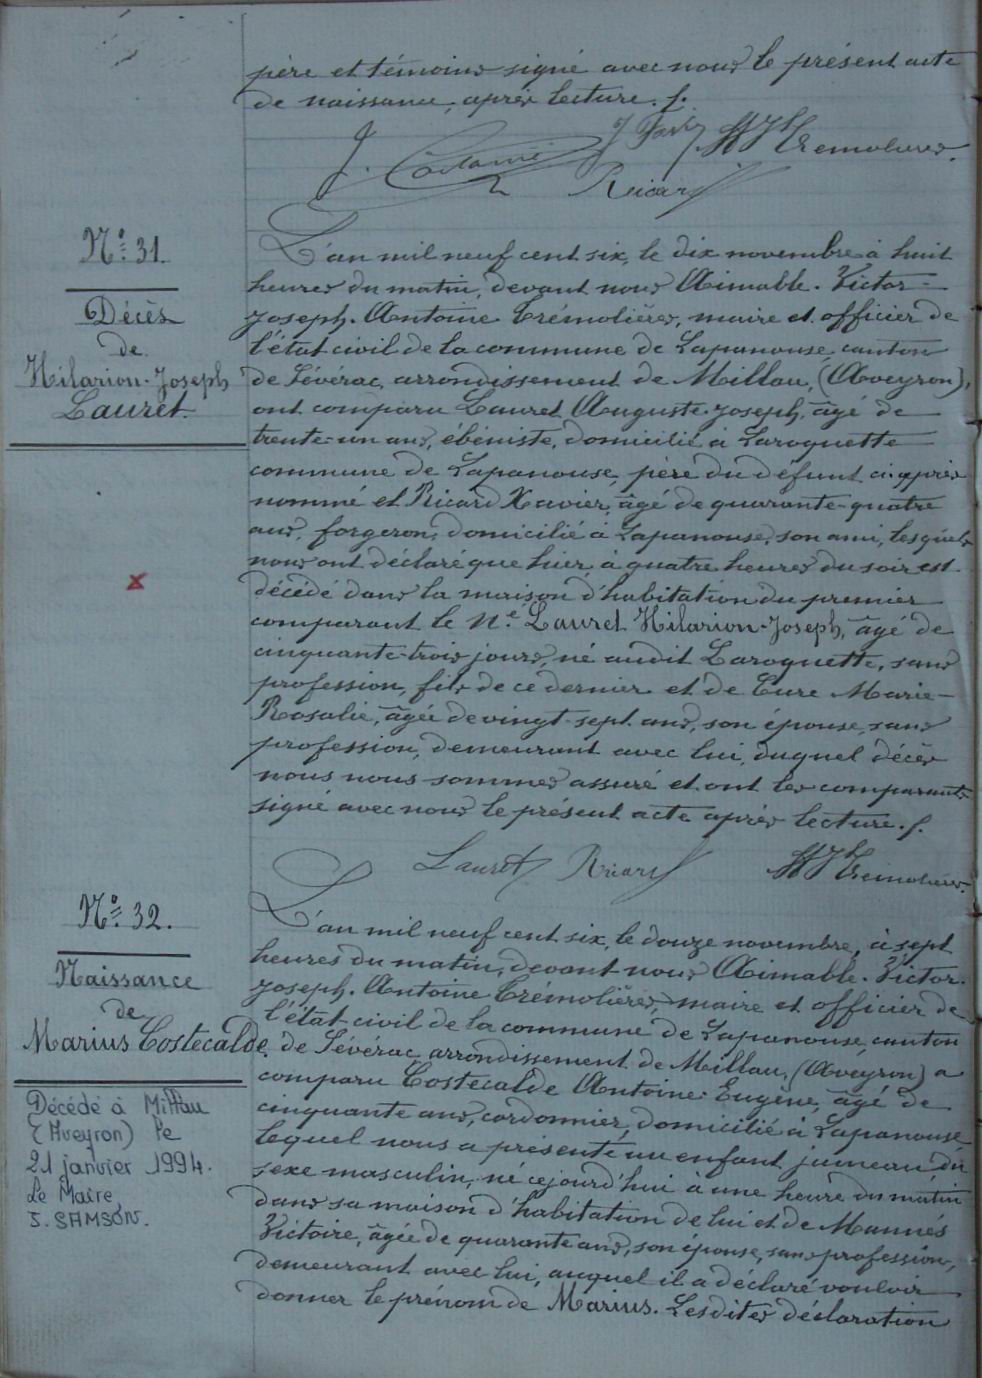 père et témoins signé avec nous le présent acte
de naissance, après lecture. f.
J. Costecalde J. Ricard Tremolières.
Ricard
N°: 31.
Décès
de
Hilarion-Joseph
Lauret.
L'an mil neuf cent six, le dix novembre à huit
heures du matin, devant nous Aimable. Victor-
Joseph. Antoine Trémolières, maire et officier de
l'état civil de la commune de Lapanouse, canton
de Sévérac, arrondissement de Millau, (Aveyron),
ont comparu Lauret Auguste-Joseph, âgé de
trente-un ans, ébéniste, domicilié à Laroquette
commune de Lapanouse, père du défunt ci-après
nommé et Ricard Xavier, âgé de quarante-quatre
ans, forgeron, domicilié à Lapanouse, son ami, lesquels
nous ont déclaré que hier, à quatre heures du soir est
décédé dans la maison d'habitation du premier
comparant le N.é Lauret Hilarion-Joseph, âgé de
cinquante-trois jours, né audit Laroquette, sans
profession, fils de ce dernier et de Cure Marie-
Rosalie, âgée de vingt-sept ans, son épouse, sans
profession, demeurant avec lui, duquel décès
nous nous sommes assuré et ont les comparants
signé avec nous le présent acte après lecture. f.
Lauret Ricard Tremolières.
N°: 32.
Naissance
de
Marius Costecalde.
Décédé à Millau
(Aveyron) le
21 janvier 1994.
Le Maire,
J. SAMSON.
L'an mil neuf cent six, le douze novembre, à sept
heures du matin, devant nous Aimable. Victor.
Joseph. Antoine Trémolières, maire et officier de
l'état civil de la commune de Lapanouse, canton
de Sévérac, arrondissement de Millau, (Aveyron) a
comparu Costecalde Antoine-Eugène, âgé de
cinquante ans, cordonnier, domicilié à Lapanouse
lequel nous a présenté un enfant jumeau du
sexe masculin, né cejourd'hui a une heure du matin
dans sa maison d'habitation de lui et de Monnés
Victoire, âgée de quarante ans, son épouse, sans profession,
demeurant avec lui, auquel il a déclaré vouloir
donner le prénom de Marius. Lesdites déclaration